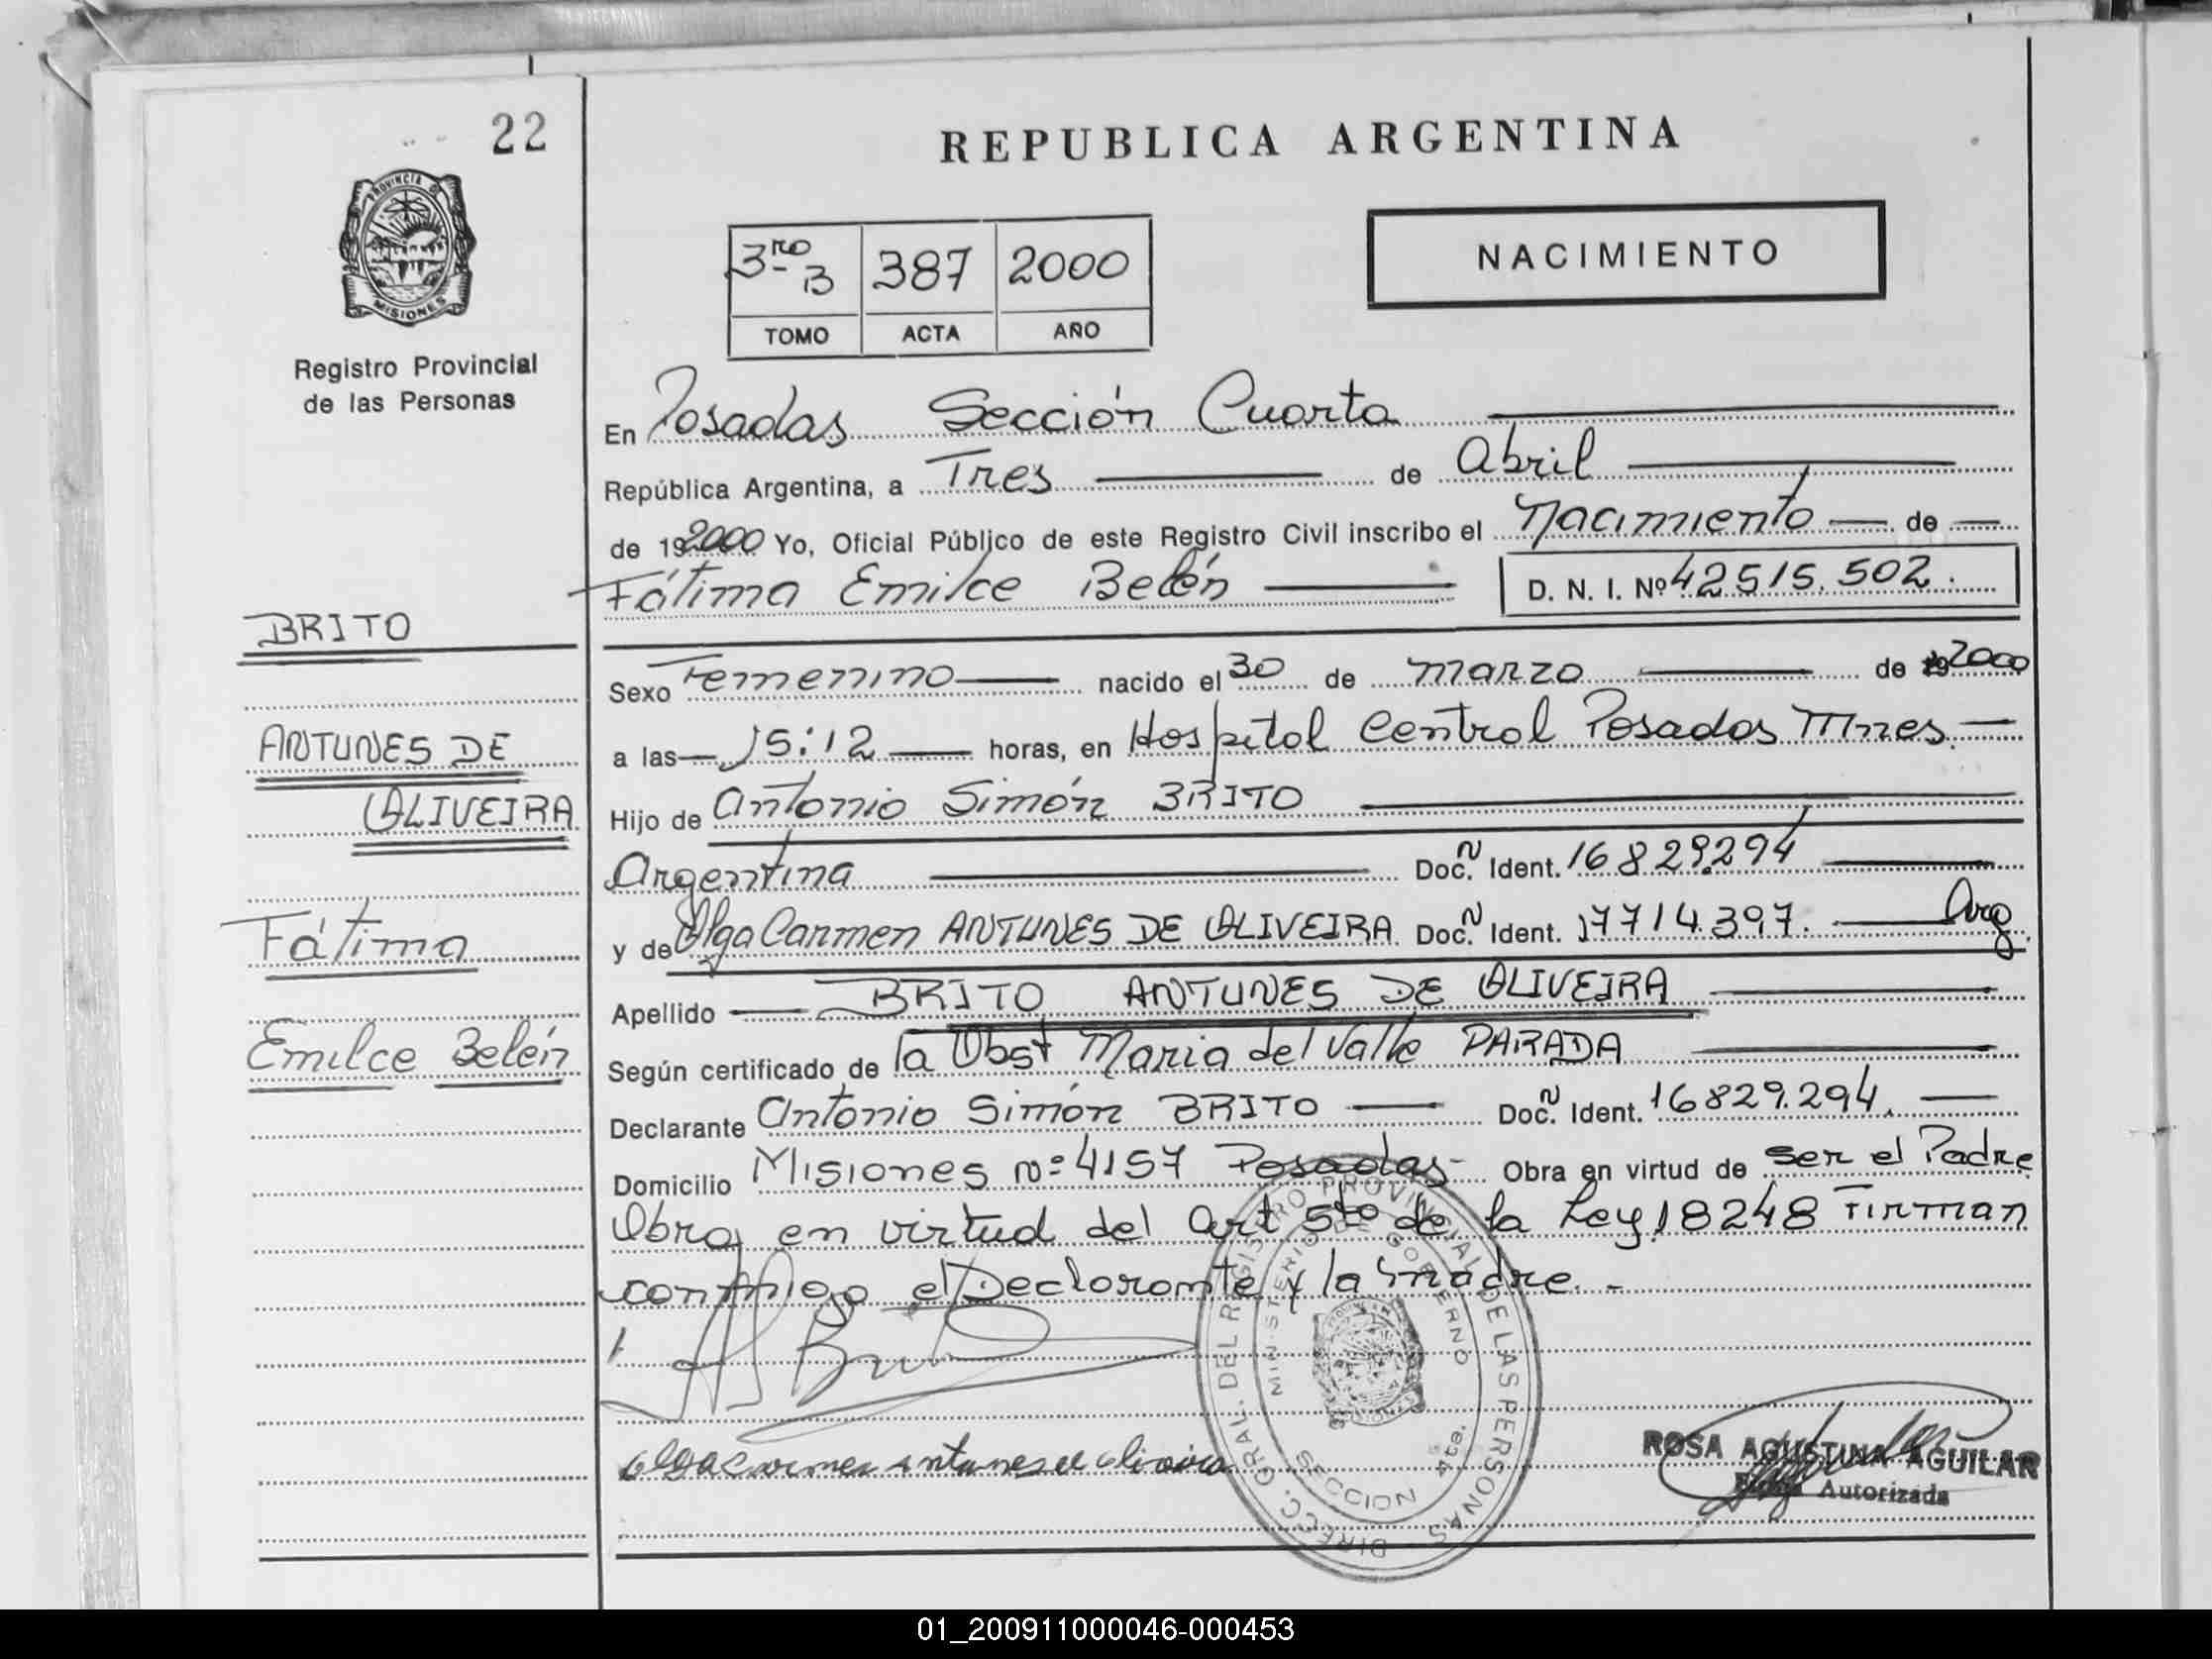 22
PROVINCIA DE
MISIONES
Registro Provincial
de las Personas
BRITO
ANTUNES DE
OLIVEIRA
Fátima
Emilce Belén
REPUBLICA ARGENTINA
NACIMIENTO
3ro B 387 2000
TOMO ACTA AÑO
En Posadas Sección Cuarta
República Argentina, a Tres de Abril
de 192000 Yo, Oficial Público de este Registro Civil inscribo el Nacimiento de
Fátima Emilce Belén D. N. I. Nº 42515.502.
Sexo Femenino nacido el 30 de marzo de 192000
a las 15:12 horas, en Hospital Central Posadas Mnes.
Hijo de Antonio Simón BRITO
Argentina Doc. N Ident. 16829.294
y de Olga Carmen ANTUNES DE OLIVEIRA Doc. N Ident. 17714.397. Arg.
Apellido BRITO ANTUNES DE OLIVEIRA
Según certificado de la Obst Maria del Valle PARADA
Declarante Antonio Simón BRITO Doc. N Ident. 16829.294.
Domicilio Misiones nº 4157 Posadas Obra en virtud de ser el Padre
Obra en virtud del Art 5to de la Ley 18248 Firman
conmigo el Declarante y la madre. -
DIRECC. GRAL. DEL REGISTRO PROVINCIAL DE LAS PERSONAS
MINISTERIO DE GOBIERNO
SECCION 4ta.
Olga Carmen Antunes de Oliveira
ROSA AGUSTINA AGUILAR
Autorizada
01_200911000046-000453